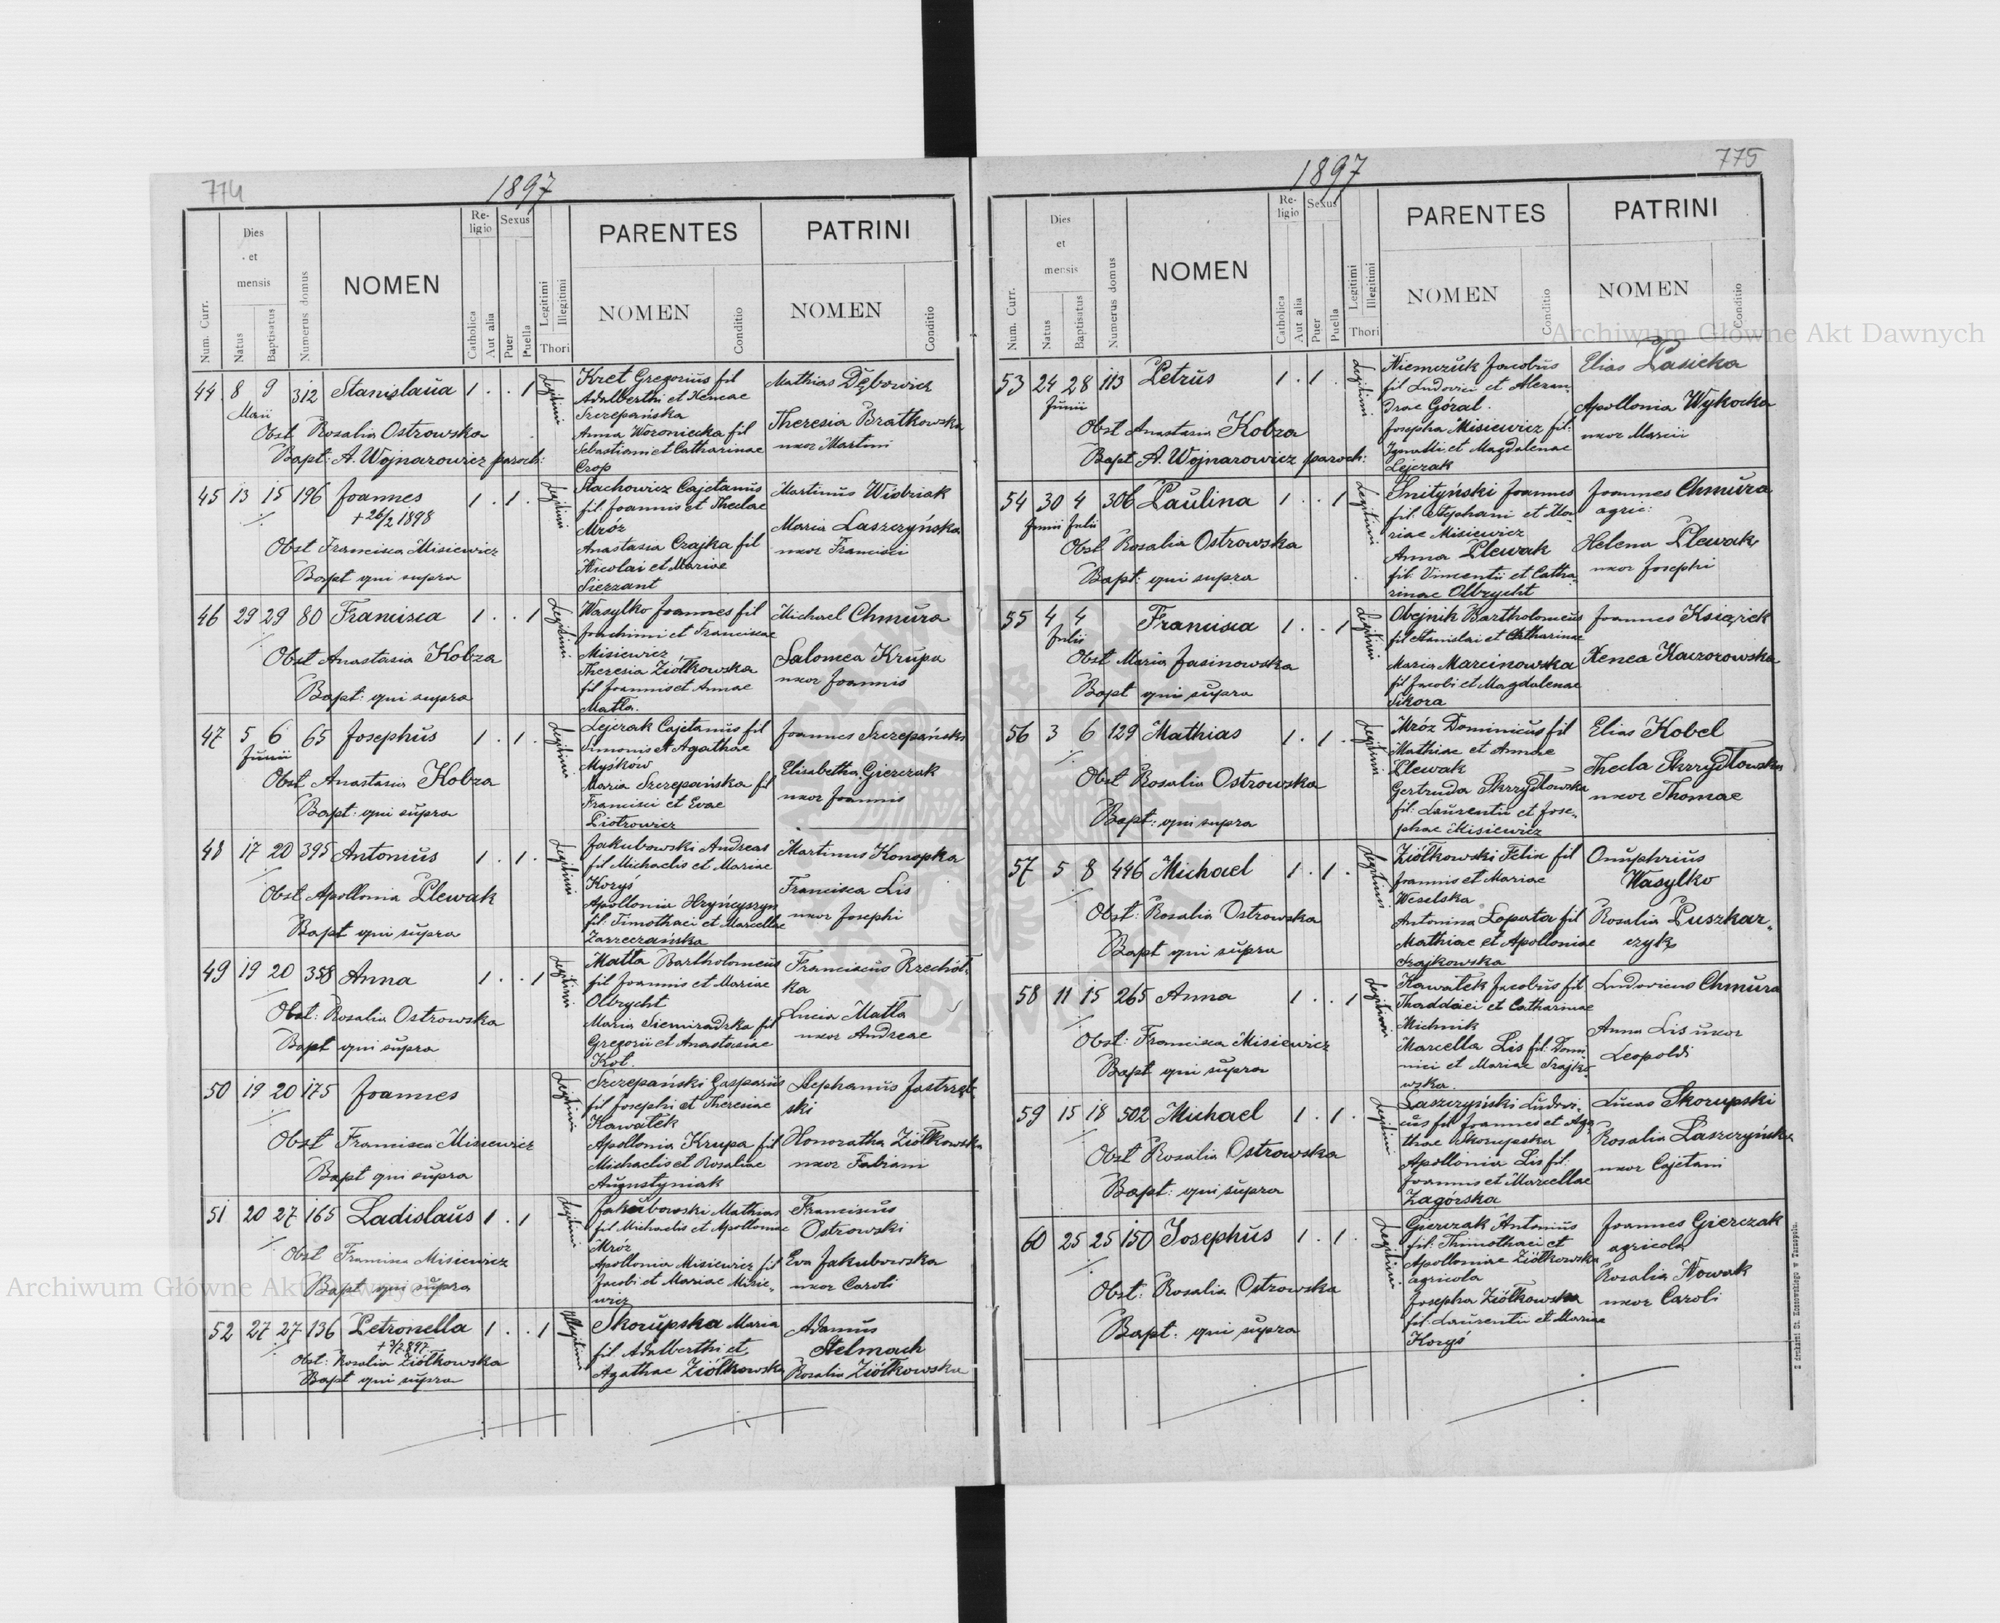 774
1897
Num. Curr.
Dies et mensis
Natus
Baptisatus
Numerus domus
NOMEN
Religio
Catholica
Aut alia
Sexus
Puer
Puella
Legitimi
Illegitimi
Thori
PARENTES
NOMEN
Conditio
PATRINI
NOMEN
Conditio
44 8 9 312 Stanislaua 1 . . 1 Legitimi
Maii
Obst Rosalia Ostrowska
Bapt: A. Wojnarowicz paroch:
Kret Gregorius fil
Adalberti et Xeneae
Szczepańska
Anna Woroniecka fil
Sebastiani et Catharinae
Crop
Mathias Dębowicz
Theresia Bratkowska
uxor Martini
45 13 15 196 Joannes 1 . 1 . Legitimi
+ 26/2 1898
Obst Francisca Misiewicz
Bapt qui supra
Stachowicz Cajetanus
fil Joannis et Theclae
Mróz
Anastasia Czajka fil
Nicolai et Mariae
Sierzant
Martinus Wiśniak
Maria Laszczyńska
uxor Francisci
46 29 29 80 Francisca 1 . . 1 Legitimi
Obst Anastasia Kobza
Bapt: qui supra
Wasylko Joannes fil
Joachimi et Franciscae
Misiewicz
Theresia Ziółkowska
fil Joannis et Annae
Matla.
Michael Chmura
Salomea Krupa
uxor Joannis
47 5 6 65 Josephus 1 . 1 . Legitimi
Junii
Obst Anastasia Kobza
Bapt: qui supra
Lejczak Cajetanus fil
Simonis et Agathae
Myśków
Maria Szczepańska fil
Francisci et Evae
Piotrowicz
Joannes Szczepański
Elisabetha Gierczak
uxor Joannis
48 17 20 395 Antonius 1 . 1 . Legitimi
Obst Apollonia Plewak
Bapt qui supra
Jakubowski Andreas
fil Michaelis et Mariae
Koryś
Apollonia Hryńcyszyn
fil: Timothaei et Marcellae
Zarzeczańska
Martinus Konopka
Francisca Lis
uxor Josephi
49 19 20 358 Anna 1 . . 1 Legitimi
Obst: Rosalia Ostrowska
Bapt qui supra
Matla Bartholomeus
fil Joannis et Mariae
Olbrycht
Maria Siemiradzka fil
Gregorii et Anastasiae
Kot.
Franciscus Rzechół-
ka
Lucia Matla
uxor Andreae
50 19 20 175 Joannes Legitimi
Obst Francisca Misiewicz
Bapt qui supra
Szczepański Gasparus
fil Josephi et Theresiae
Kawałek
Apollonia Krupa fil
Michaelis et Rosaliae
Augustyniak
Stephanus Jastrzęb-
ski
Honoratha Ziółkowska
uxor Fabiani
51 20 27 165 Ladislaus 1 . 1 Legitimi
Obst Francisca Misiewicz
Bapt qui supra
Jakubowski Mathias
fil Michaelis et Apolloniae
Mróz
Apollonia Misiewicz fil
Jacobi et Mariae Misie-
wicz
Franciscus
Ostrowski
Eva Jakubowska
uxor Caroli
52 27 27 136 Petronella 1 . . 1 Illegitimi
Obst: Rosalia Ziółkowska
Bapt qui supra
Skorupska Maria
fil Adalberthi et
Agathae Ziółkowska
Adamus
Stelmach
Rosalia Ziółkowska
775
1897
Num. Curr.
Dies et mensis
Natus
Baptisatus
Numerus domus
NOMEN
Religio
Catholica
Aut alia
Sexus
Puer
Puella
Legitimi
Illegitimi
Thori
PARENTES
NOMEN
Conditio
PATRINI
NOMEN
Conditio
53 24 28 113 Petrus 1 . 1 . Legitimi
Junii
Obst Anastasia Kobza
Bapt A. Wojnarowicz paroch:
Niemczuk Jacobus
fil Ludovici et Alexan-
drae Góral.
Josepha Misiewicz fil:
Ignatii et Magdalenae
Lejczak
Elias Pasieka
Apollonia Wykocka
uxor Marcii
54 30 4 306 Paulina 1 . . 1 Legitimi
Junii Julii
Obst Rosalia Ostrowska
Bapt: qui supra
Snityński Joannes
fil Stephani et Ma-
riae Misiewicz
Anna Plewak
fil: Vincentii et Catha-
rinae Olbrycht
Joannes Chmura
agric:
Helena Plewak
uxor Josephi
55 4 4 Francisca 1 . . 1 Legitimi
Julii
Obst Maria Jasinowska
Bapt qui supra
Obejnik Bartholomeus
fil Stanislai et Catharinae
Maria Marcinowska
fil Jacobi et Magdalenae
Sikora
Joannes Książek
Xenea Kaczorowska
56 3 6 129 Mathias 1 . 1 . Legitimi
Obst Rosalia Ostrowska
Bapt: qui supra
Mróz Dominicus fil
Mathiae et Annae
Plewak
Gertruda Skrzydłowska
fil: Laurentii et Jose-
phae Misiewicz
Elias Kobel
Thecla Skrzydłowska
uxor Thomae
57 5 8 446 Michael 1 . 1 . Legitimi
Obst: Rosalia Ostrowska
Bapt qui supra
Ziółkowski Felix fil
Joannis et Mariae
Weselska
Antonina Łopata fil
Mathiae et Apolloniae
Frajkowska
Onuphrius
Wasylko
Rosalia Puszkar-
czyk
58 11 15 265 Anna 1 . . 1 Legitimi
Obst: Francisca Misiewicz
Bapt qui supra
Kawałek Jacobus fil
Thaddaei et Catharinae
Michnik
Marcella Lis fil: Domi-
nici et Mariae Frajko-
wska.
Ludovicus Chmura
Anna Lis uxor
Leopoldi
59 15 18 502 Michael 1 . 1 . Legitimi
Obst Rosalia Ostrowska
Bapt: qui supra
Laszczyński Ludovi-
cus fil Joannes et Aga-
thae Skorupska
Apollonia Lis fil
Joannis et Marcellae
Zagórska
Lucas Skorupski
Rosalia Laszczyńska
uxor Cajetani
60 25 25 150 Josephus 1 . 1 . Legitimi
Obst: Rosalia Ostrowska
Bapt: qui supra
Gierczak Antonius
fil: Thimothaei et
Apolloniae Ziółkowska
agricola
Josepha Ziółkowska
fil: Laurentii et Mariae
Koryś
Joannes Gierczak
agricola
Rosalia Nowak
uxor Caroli
Z drukarni St. Kossowskiego w Tarnopolu.
Archiwum Główne Akt Dawnych
Archiwum Główne Akt Dawnych